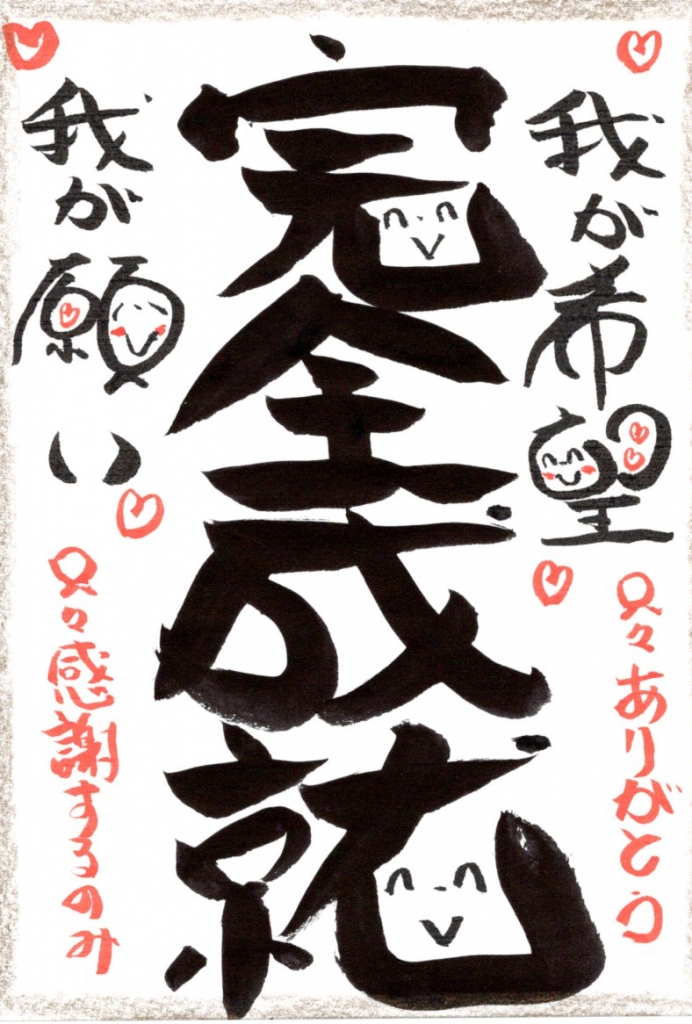 我が希望
只々ありがとう
完全成就
我が願い
只々感謝するのみ